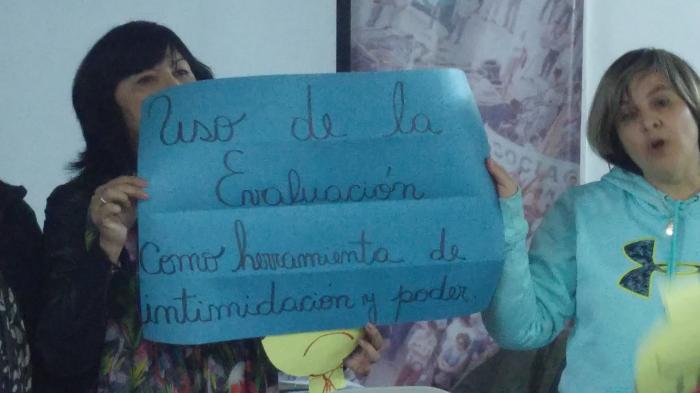 Uso de la
Evaluación
Como herramienta de
intimidación y poder.